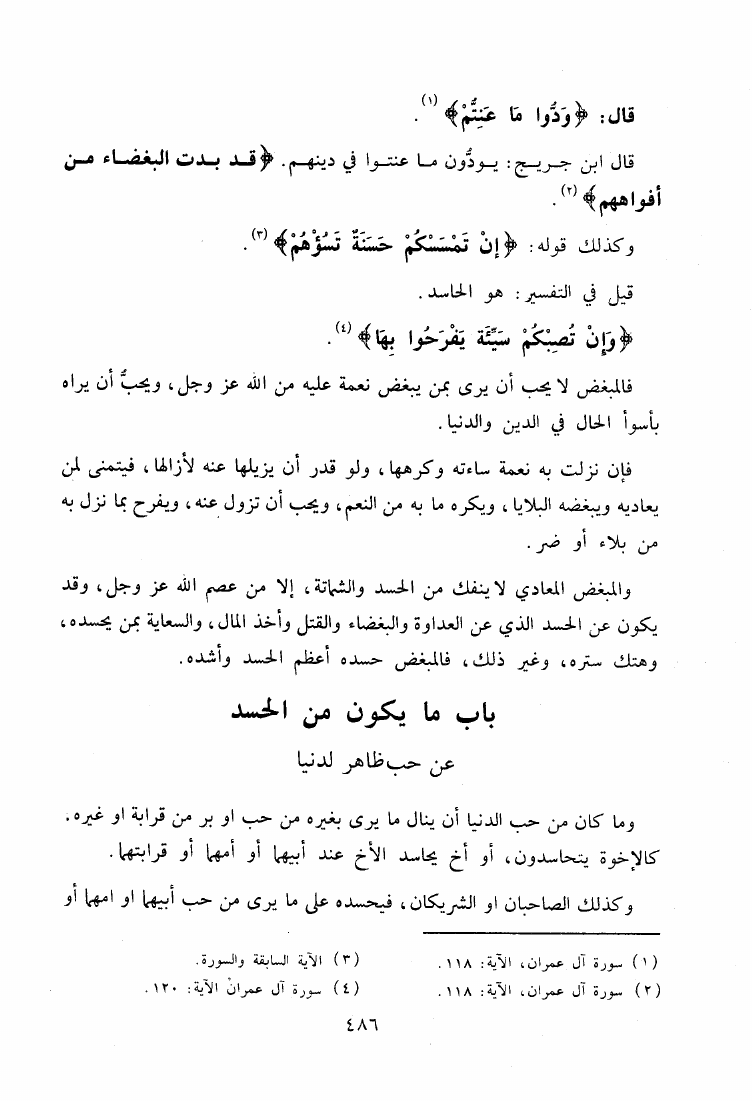 قال: ﴿وَدُّوا مَا عَنِتُّمْ﴾ (١).
قال ابن جريج: يودُّون ما عنتوا في دينهم. ﴿قد بدت البغضاء من
أفواههم﴾ (٢).
وكذلك قوله: ﴿إنْ تَمْسَسْكُمْ حَسَنَةٌ تَسُؤْهُمْ﴾ (٣).
قيل في التفسير: هو الحاسد.
﴿وَإِنْ تُصِبْكُمْ سَيِّئَة يَفْرَحُوا بِهَا﴾ (٤).
فالمبغض لا يحب أن يرى بمن يبغض نعمة عليه من الله عز وجل، ويحبُّ أن يراه
بأسوأ الحال في الدين والدنيا.
فإن نزلت به نعمة ساءته وكرهها، ولو قدر أن يزيلها عنه لأزالها، فيتمنى لمن
يعاديه ويبغضه البلايا، ويكره ما به من النعم، ويحب أن تزول عنه، ويفرح بما نزل به
من بلاء أو ضر.
والمبغض المعادي لا ينفك من الحسد والشماتة، إلا من عصم الله عز وجل، وقد
يكون عن الحسد الذي عن العداوة والبغضاء والقتل وأخذ المال، والسعاية بمن يحسده،
وهتك ستره، وغير ذلك، فالمبغض حسده أعظم الحسد وأشده.
باب ما يكون من الحسد
عن حب ظاهر لدنيا
وما كان من حب الدنيا أن ينال ما يرى بغيره من حب او بر من قرابة او غيره.
كالإخوة يتحاسدون، أو أخ يحاسد الأخ عند أبيهما أو أمهما أو قرابتهما.
وكذلك الصاحبان او الشريكان، فيحسده على ما يرى من حب أبيهما او امهما أو
(١) سورة آل عمران، الآية: ١١٨.
(٢) سورة آل عمران، الآية: ١١٨.
(٣) الآية السابقة والسورة.
(٤) سورة آل عمران الآية: ١٢٠.
٤٨٦